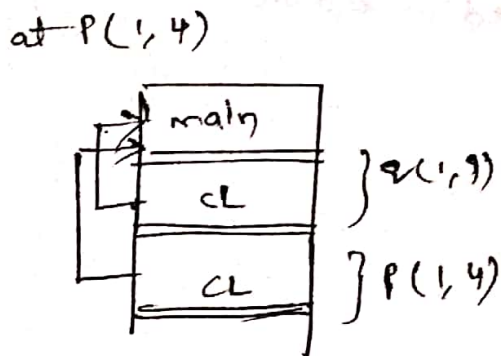 at P(1,4)
main
CL
q(1,9)
CL
P(1,4)